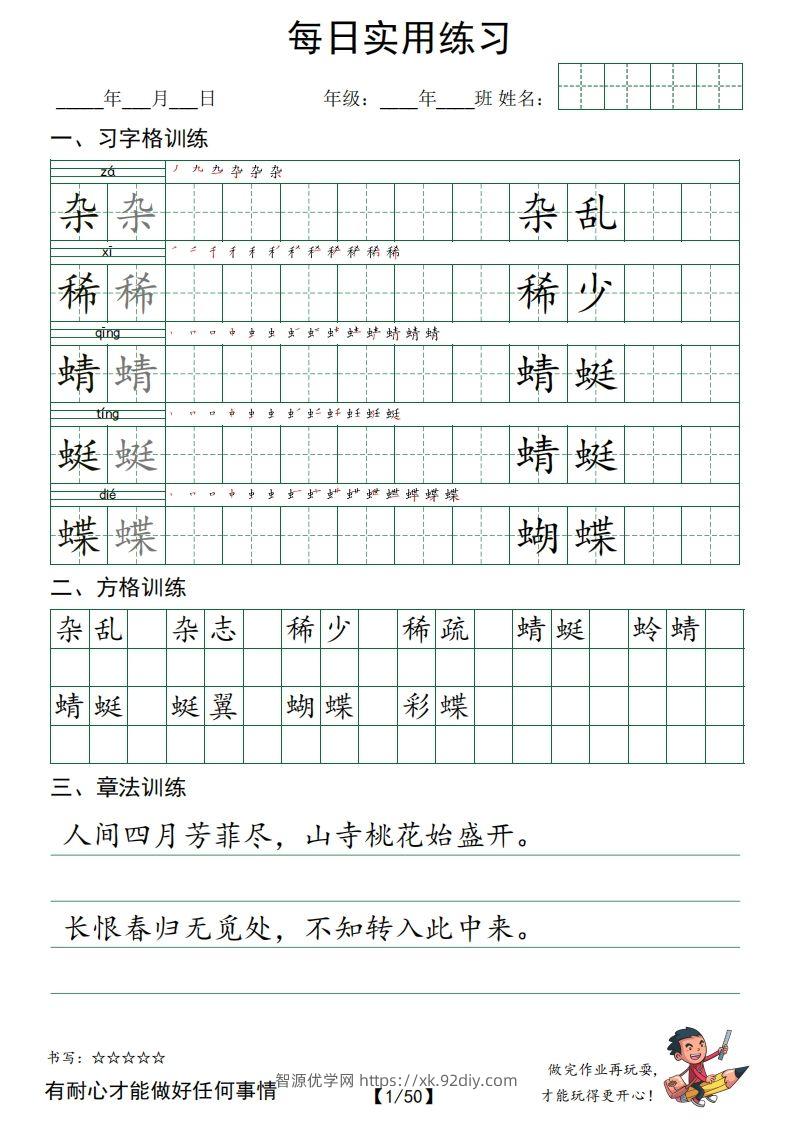 每日实用练习
_____年___月___日 年级：____年____班 姓名：
一、习字格训练
zá
杂 杂 杂 乱
xī
稀 稀 稀 少
qīng
蜻 蜻 蜻 蜓
tíng
蜓 蜓 蜻 蜓
dié
蝶 蝶 蝴 蝶
二、方格训练
杂乱 杂志 稀少 稀疏 蜻蜓 蛉蜻
蜻蜓 蜓翼 蝴蝶 彩蝶
三、章法训练
人间四月芳菲尽，山寺桃花始盛开。
长恨春归无觅处，不知转入此中来。
书写：☆☆☆☆☆
有耐心才能做好任何事情
智源优学网 https://xk.92diy.com
【1/50】
做完作业再玩耍，
才能玩得更开心！